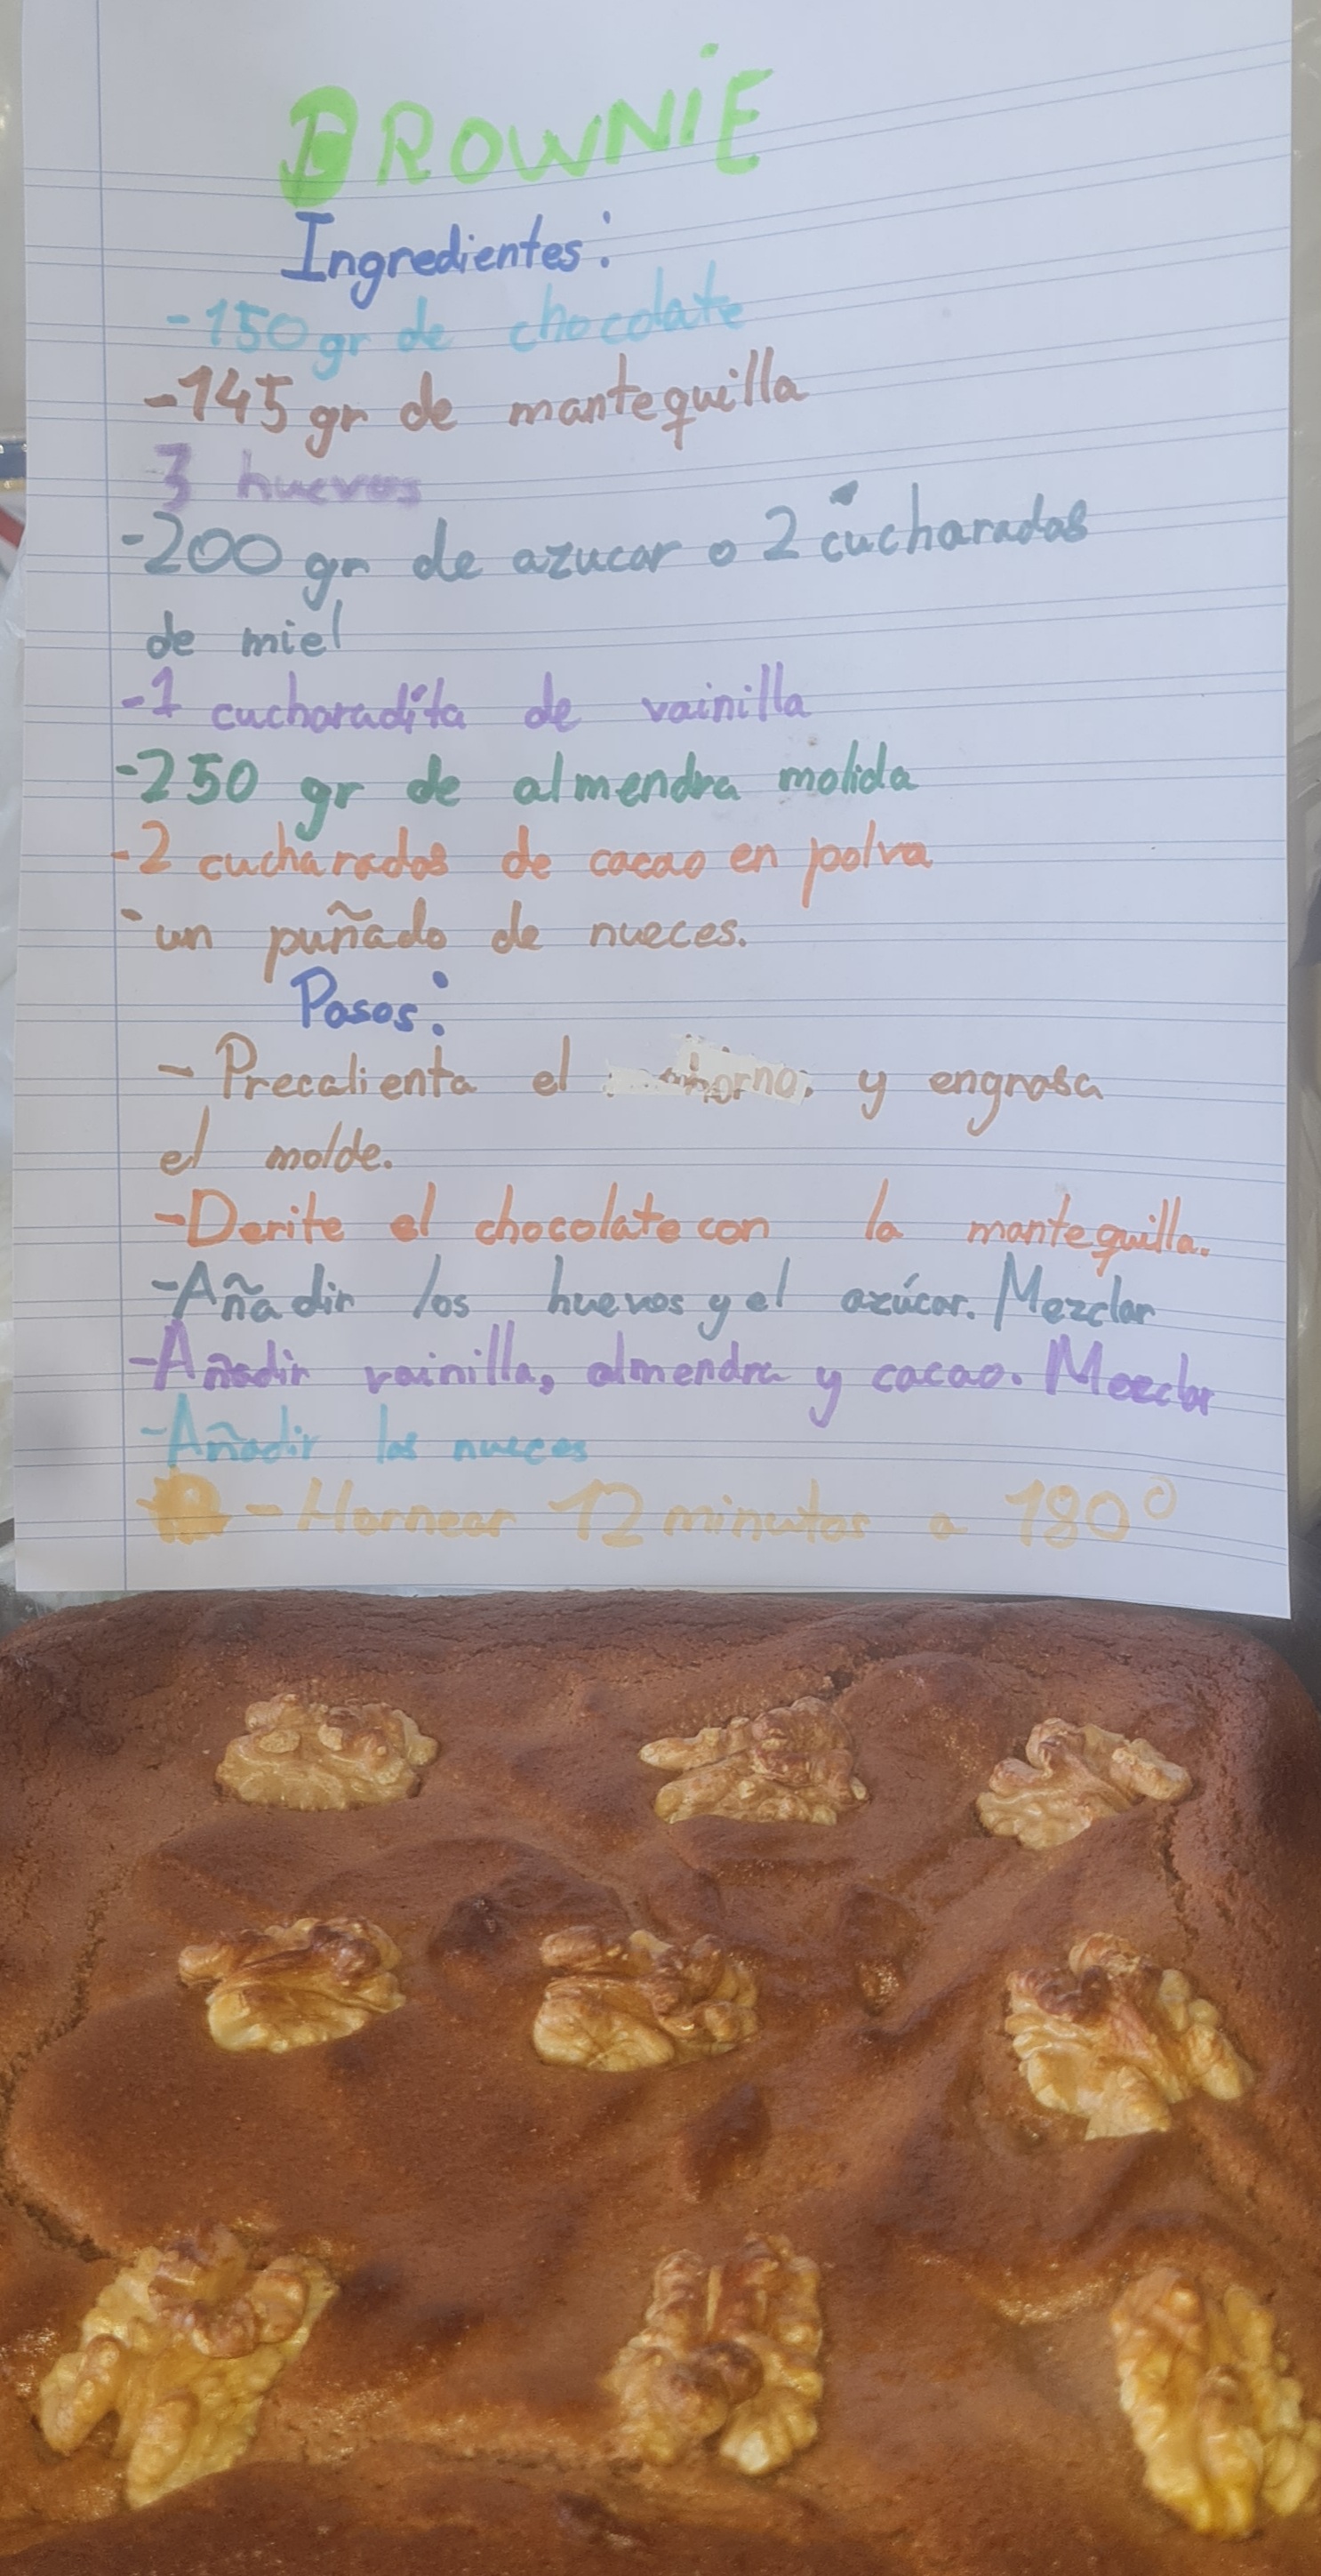 BROWNIE
Ingredientes:
-150 gr de chocolate
-145 gr de mantequilla
3 huevos
-200 gr de azucar o 2 cucharadas
de miel
-1 cucharadita de vainilla
-250 gr de almendra molida
-2 cucharadas de cacao en polvo
-un puñado de nueces.
Pasos:
- Precalienta el horno y engrasa
el molde.
-Derite el chocolate con la mantequilla.
-Añadir los huevos y el azúcar. Mezclar
-Añadir vainilla, almendra y cacao. Mezclar
-Añadir las nueces
-Hornear 12 minutos a 180°